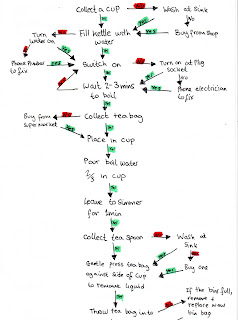 Collect a cup
Wash at Sink
No
Turn
water on
Fill Kettle with
water
Buy from Shop
Phone Plumber
to fix
Switch on
Turn on at Plug
Socket
No
Wait 2-3 mins
to boil
Phone electrician
to fix
Buy from
Supermarket
Collect tea bag
Place in cup
Pour boil water
2/3 in cup
Leave to Simmer
for 1min
Collect tea Spoon
Wash at
Sink
Gentle press tea bag
against side of Cup
to remove liquid
Buy one
Throw tea bag into
If the bin full,
remove +
replace new
bin bag